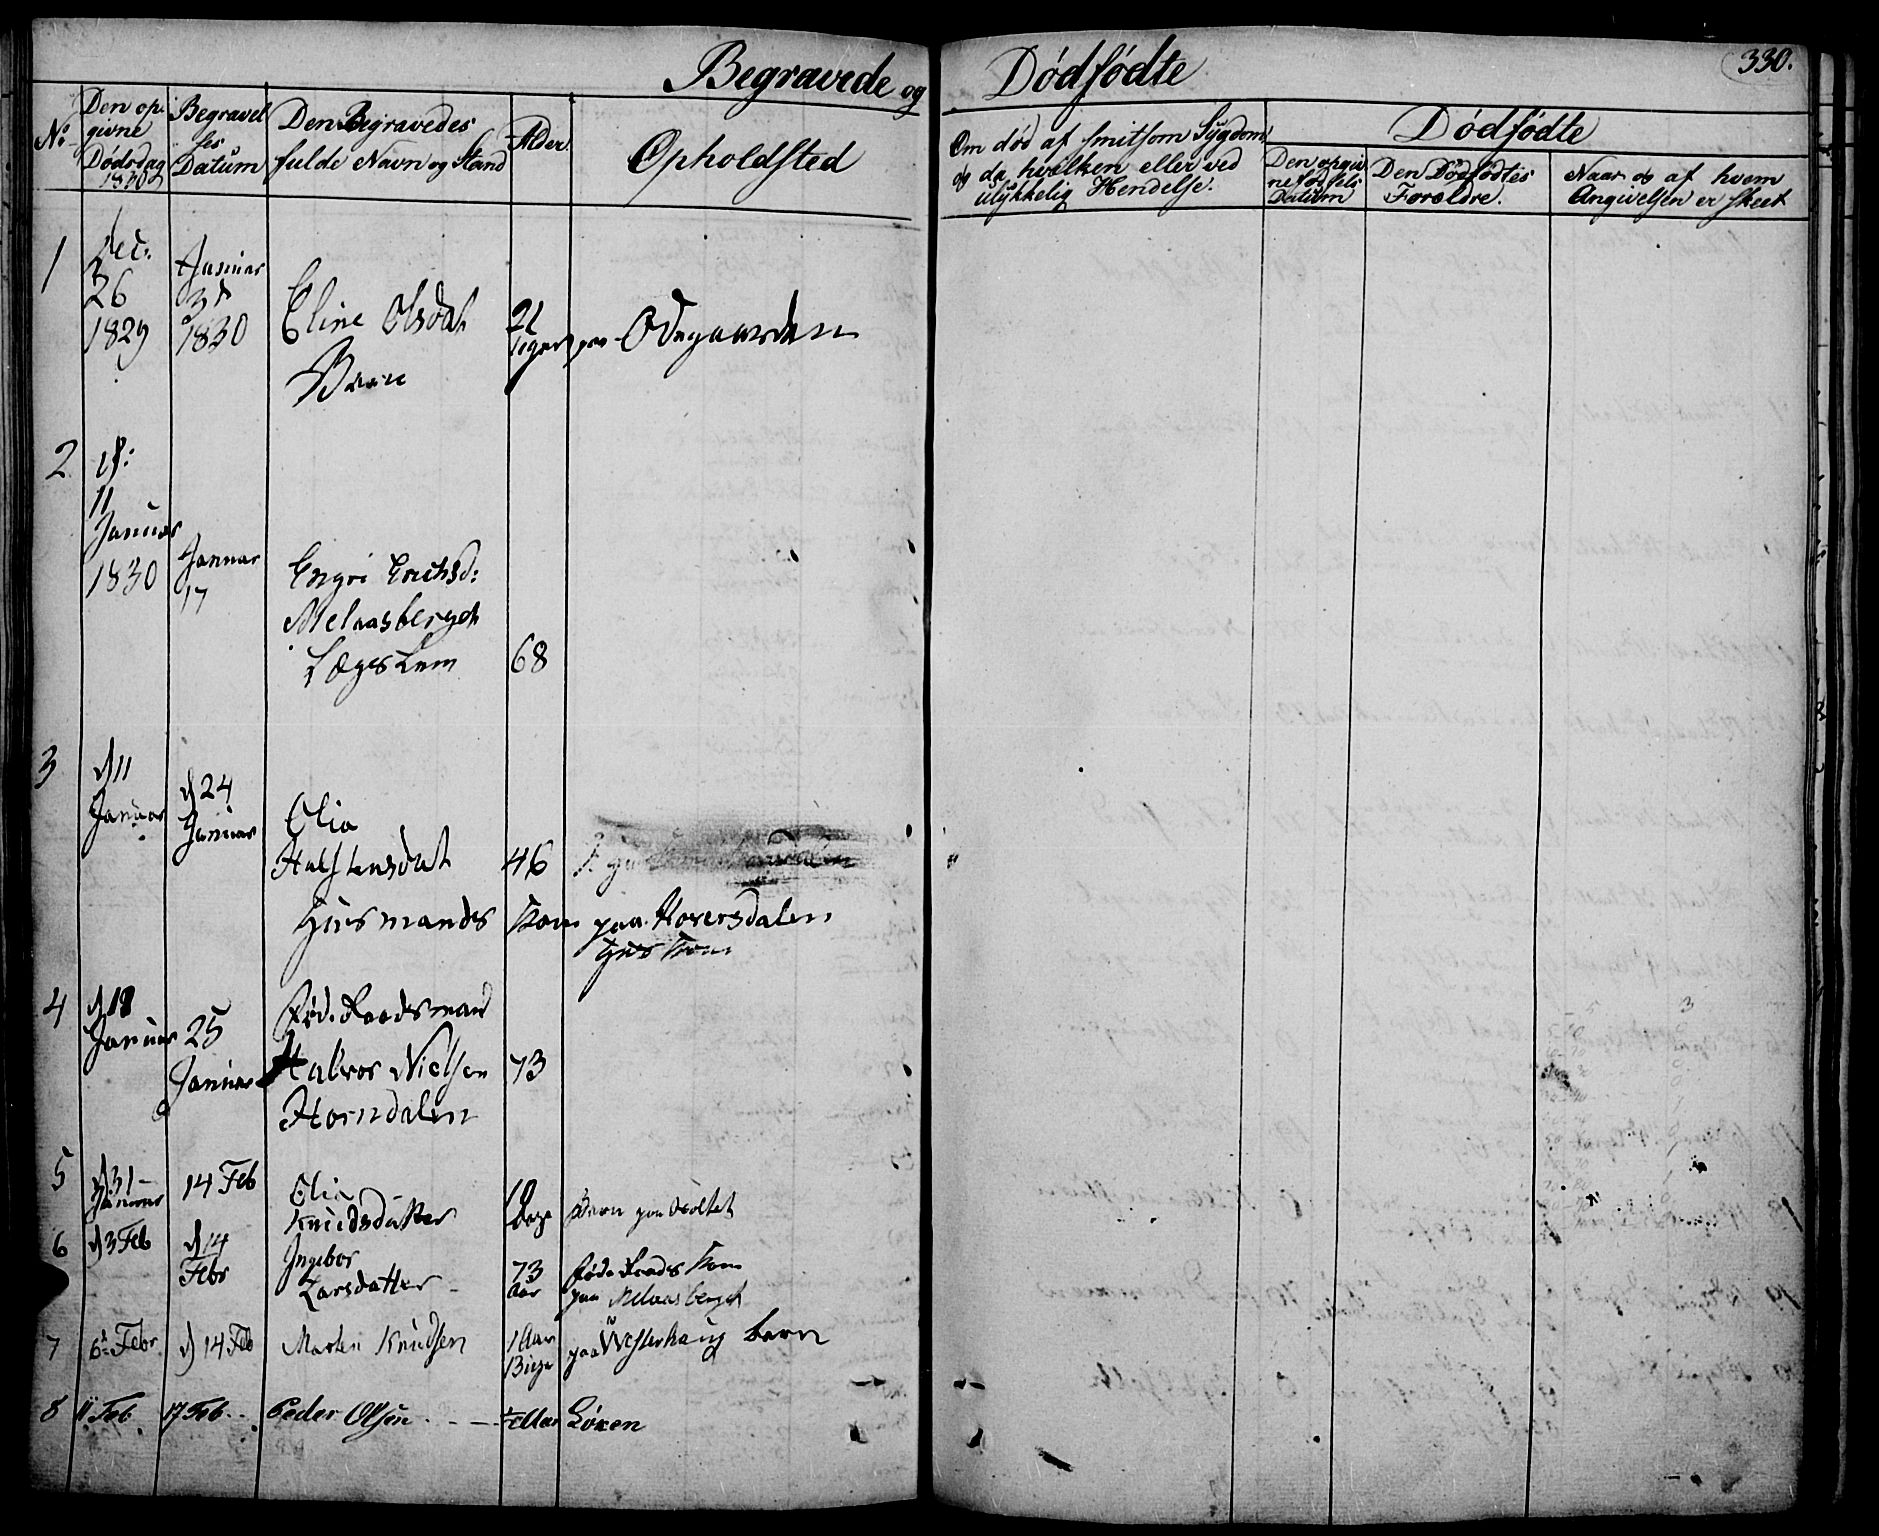 Begravede og Dødfødte
330.
No
Den op-
givne
Dødsdag
1830
Begravel
ses
Datum
Den Begravedes
fulde Navn og Stand
Alder
Opholdsted
Om død af smitsom Sygdom
og da hvilken eller ved
ulykkelig Hendelse.
Dødfødte
Den opgiv
ne fødsels
Datum
Den Dødfødtes
Forældre.
Naar og af hvem
Angivelsen er skeet
1
Dec.
26
1829
Januar
3d
1830
Eline Olsdat
Barn
21
Uger paa Ødegaarden
2
11
Januar
1830
Januar
17
Engri Erichsd:
Melaasberget
Lægs Lem
68
3
d 11
Januar
d 24
Januar
Olia
Halstensdat
46
Huusmands Kone paa Koversdalen
Huus Kone
4
d 18
Januar
25
Januar
Føderaadsmand
Halvor Nielsen
Horndalen
73
5
d 31
Januar
14 Feb
Olia
Knudsdatter
10
Dage
Barn paa Holtet
6
d 3 Feb
d 14
Febr
Ingebor
Larsdatter
73
Aar
Føderaads Kone
paa Melaasberget
7
6 Febr.
d 14 Feb
Marten Knudsen
1 Aar
13 Uger
paa Westerhaug barn
8
11 Feb
17 Feb.
Peder Olsen
Aar
Løken